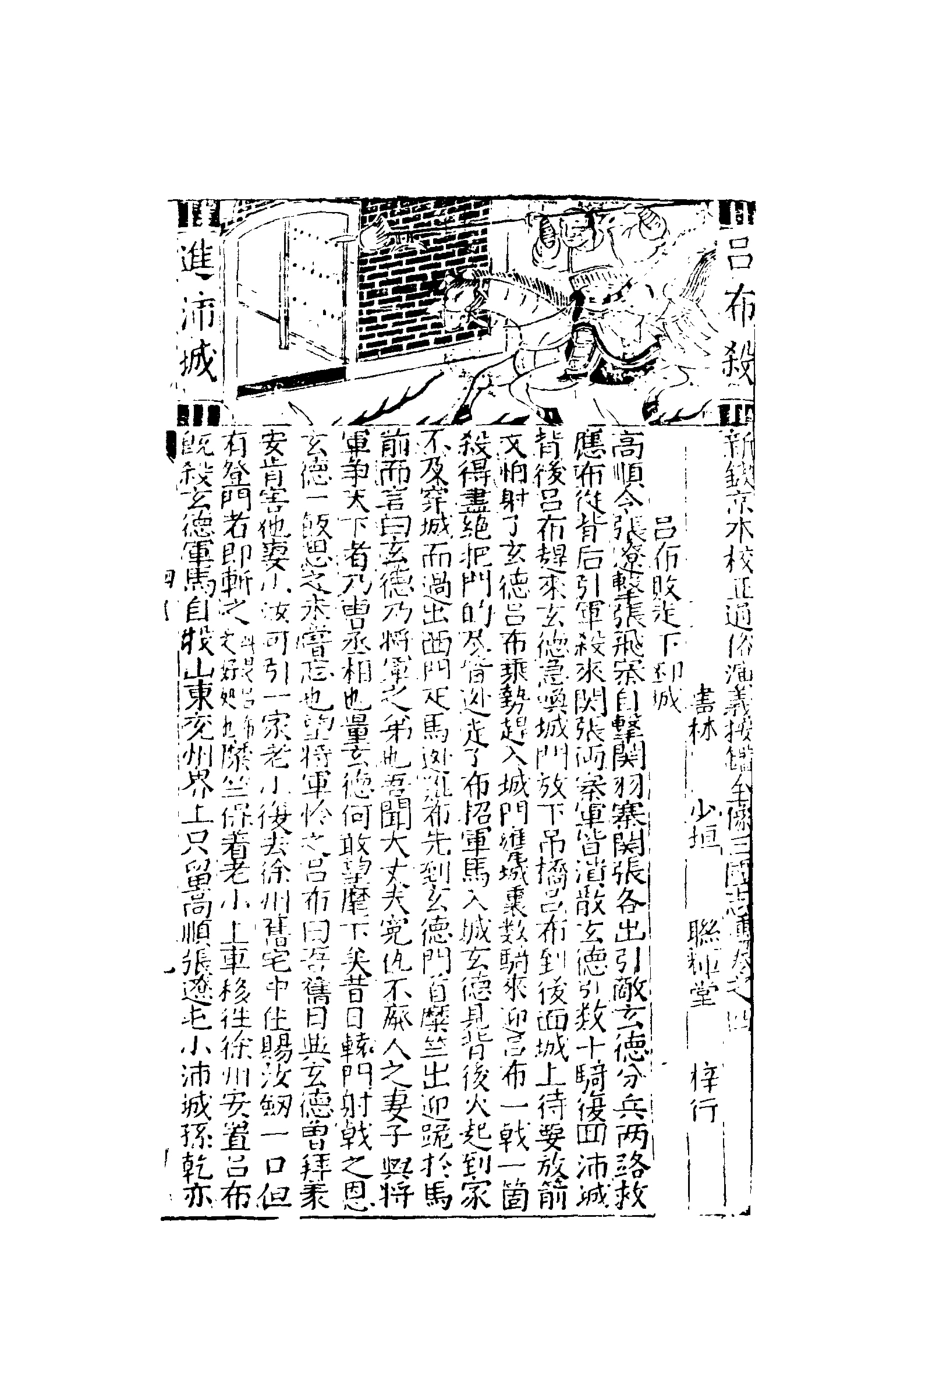 呂布殺
進沛城
新鋟京本校正通俗演義按鑑全像三國志傳卷之四
書林 少垣 聯輝堂 梓行
呂布敗走下邳城
高順令張遼擊張飛寨自擊関羽寨関張各出引敵玄德分兵两路救
應布從背后引軍殺來関張両寨軍皆消散玄德引数十騎復囬沛城
背後呂布趕來玄德急喚城門放下吊橋呂布到後面城上待要放箭
又怕射了玄德呂布乘勢趕入城門進城裏数騎來迎呂布一戟一箇
殺得盡絕把門的盡皆迯走了布招軍馬入城玄德見背後火起到家
不及穿城而過出西門疋馬迯難布先到玄德門首糜竺出迎跪於馬
前而言曰玄德乃將軍之弟也吾聞大丈夫寃仇不廢人之妻子與將
軍争天下者乃曹丞相也量玄德何敢望麾下矣昔日轅門射戟之恩
玄德一飯思之未嘗忘也望将軍怜之呂布曰吾舊日與玄德曾拜義
安肯害他妻小汝可引一家老小復去徐州舊宅中住賜汝劒一口但
有登門者即斬之 好処也糜竺保着老小上車移徃徐州安置呂布
既殺玄德軍馬自投山東兗州界上只留高順張遼屯小沛城孫乾亦